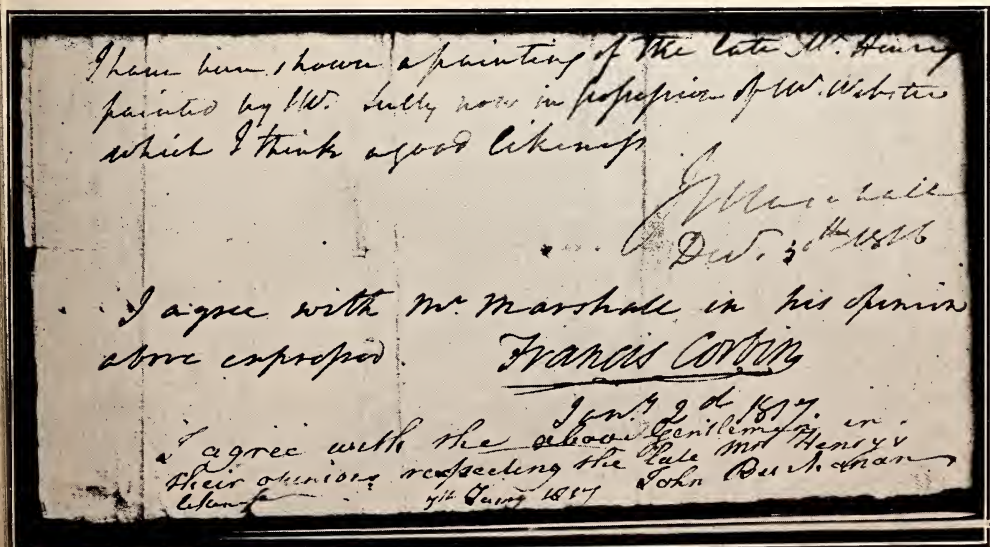 I have been shown a painting of the late Mr. Henry
painted by Mr. Sully now in possession of Mr. Webster
which I think a good likeness
J Marshall
Decr. 30th 1816
I agree with Mr. Marshall in his opinion
above expressed.
Francis Corbin
Jany 2d 1817.
I agree with the above Gentlemen in
their opinions respecting the late Mr Henry's
likeness
7th Jany 1817
John Buchanan